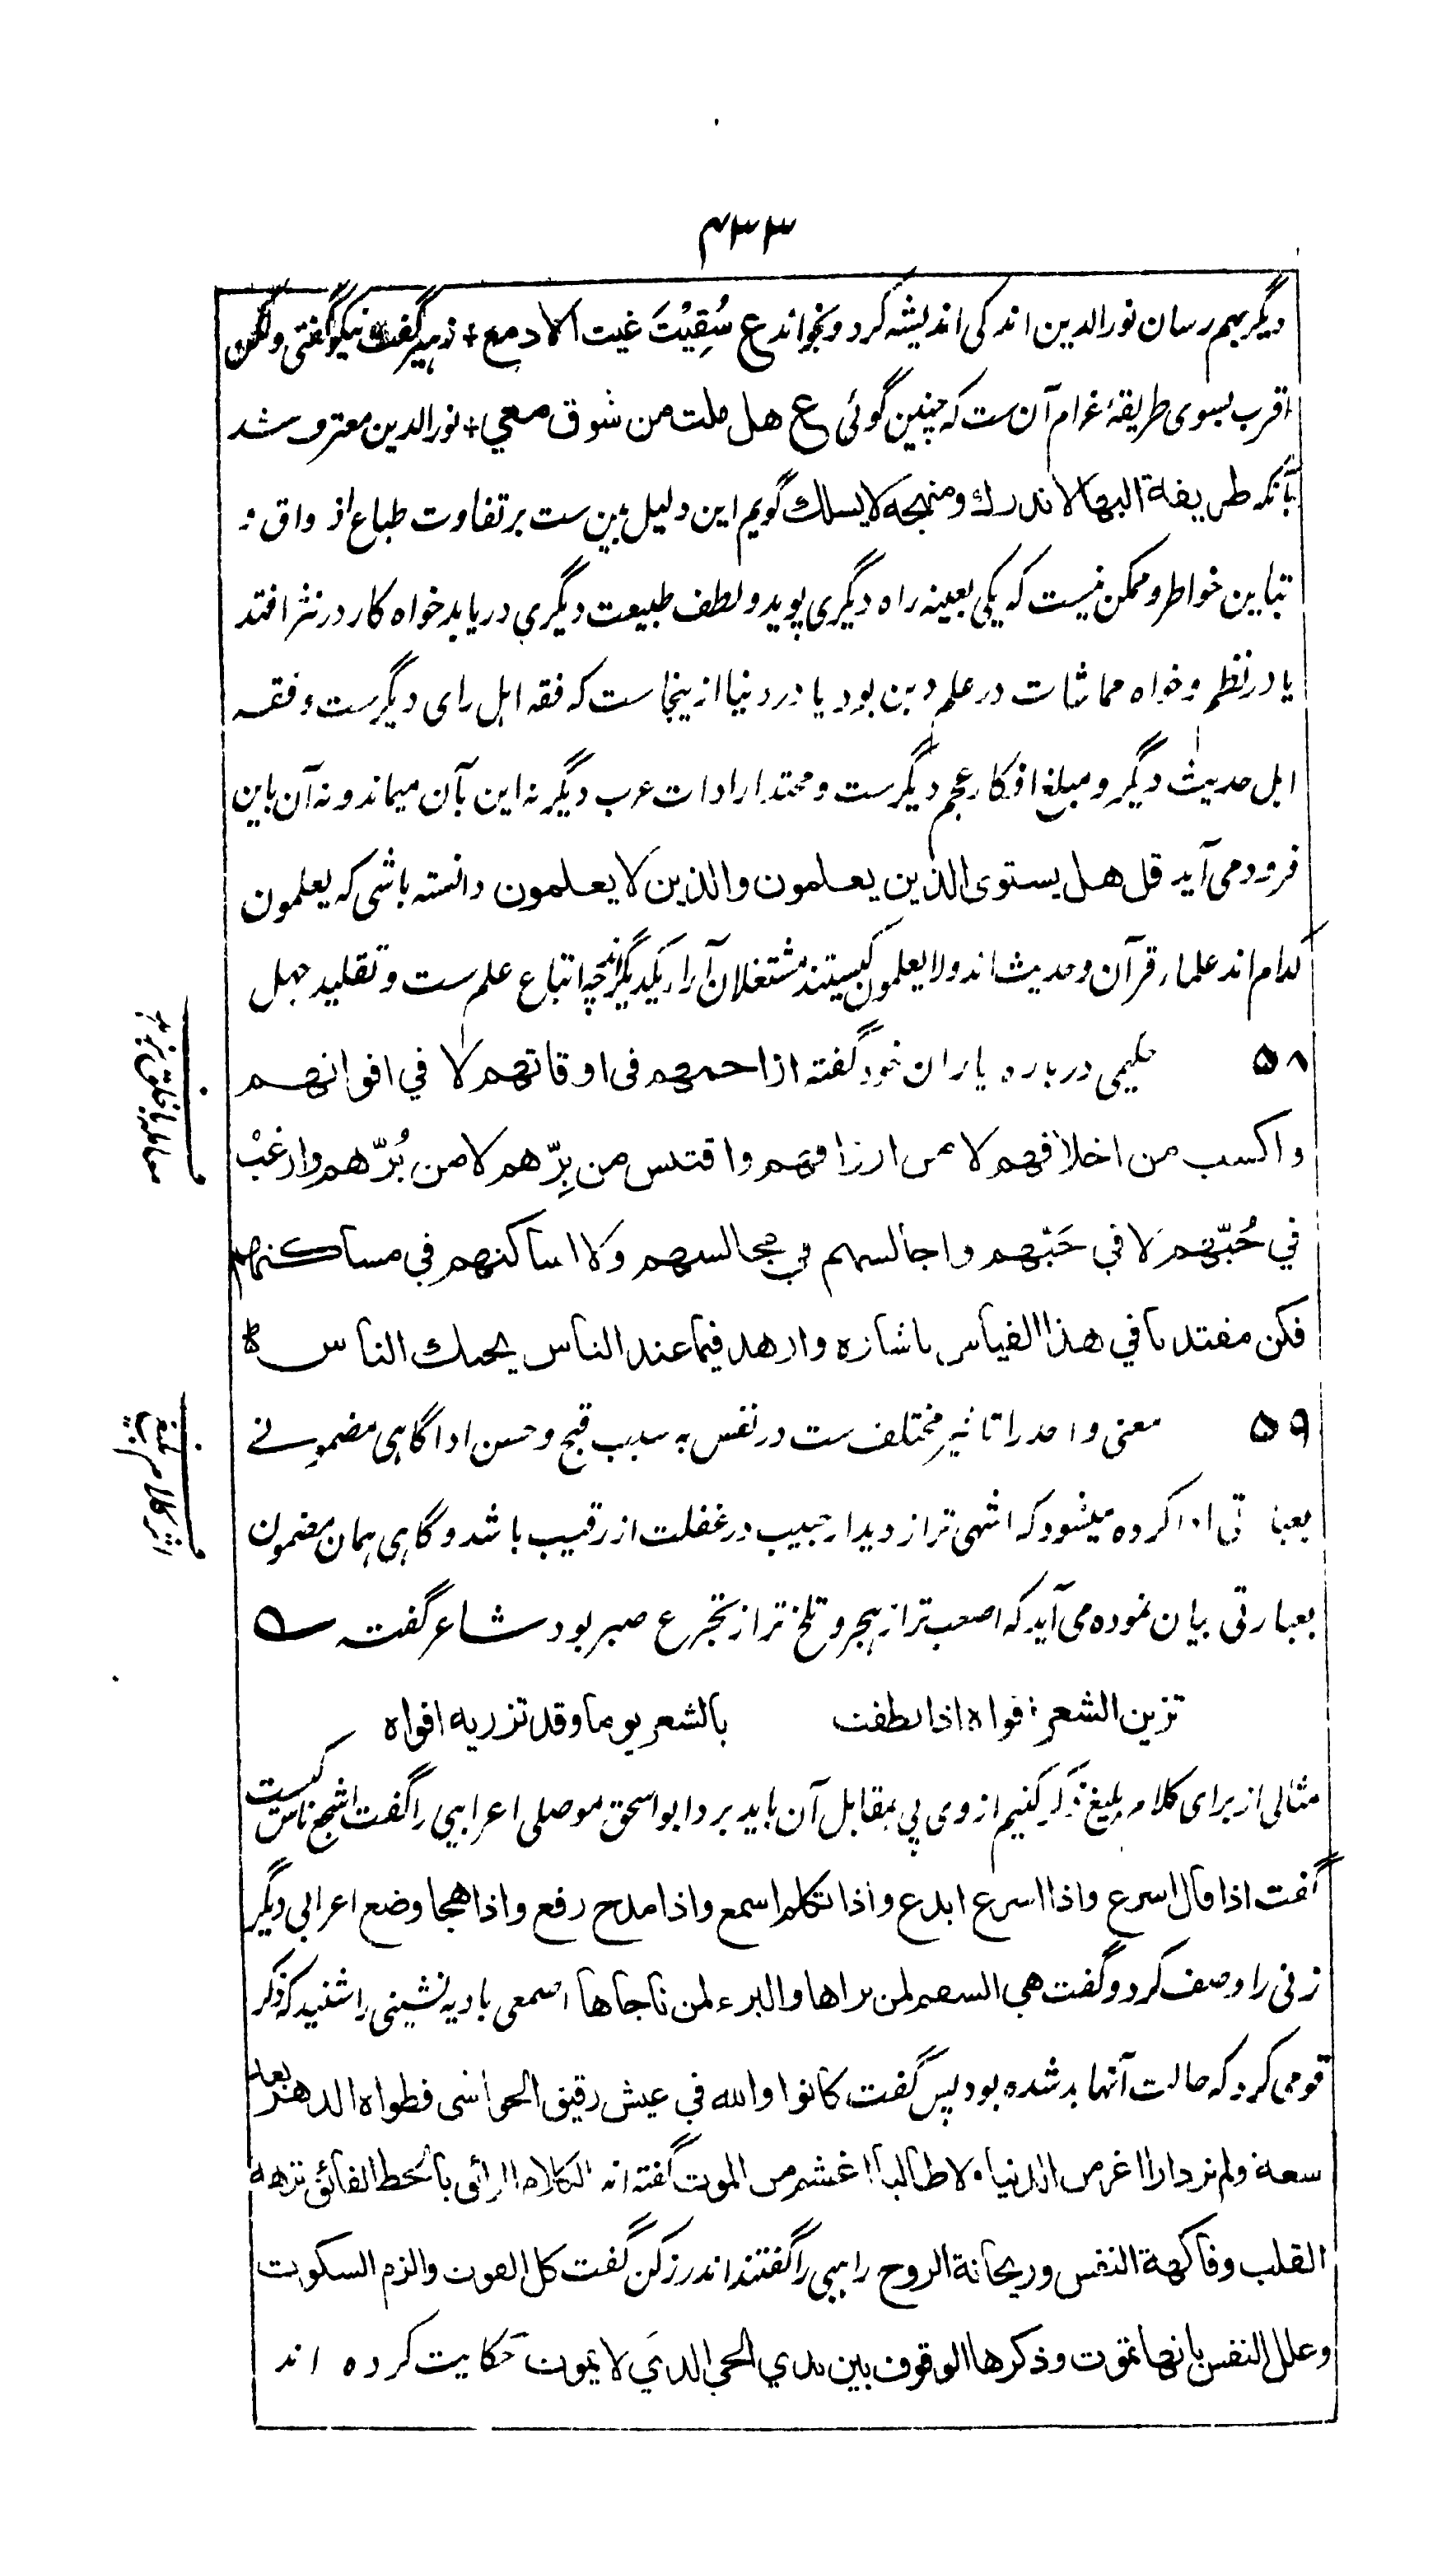 ۴۳۳
دیگر بهم رسان نورالدین اندکی اندیشه کرد و بخواند ع سُقِیْتَ غیث الادمع + زهیر گفت نیکو گفتی ولکن
اقرب بسوی طریقهٔ غرام آن ست که چنین گوئی ع هل ملت من شوق معي + نورالدین معترف شد
بآنکه طریقة البها لا تدرك ومنهجه لا یسلك گویم این دلیل بین ست بر تفاوت طباع اذواق و
تباین خواطر و ممکن نیست که یکی بعینه راه دیگری پوید و لطف طبیعت دیگری دریابد خواه کار در نثر افتد
یا در نظم و خواه مماثات در علم دین بود یا در دنیا ازینجاست که فقه اهل رای دیگرست و فقه
اهل حدیث دیگر و مبلغ افکار عجم دیگرست و محتد ارادات عرب دیگر نه این بآن میماند و نه آن باین
فرود می آید قل هل یستوی الذین یعلمون والذین لا یعلمون دانسته باشی که یعلمون
کدام اند علماء قرآن و حدیث اند و لا یعلمون کیستند مشتغلان آراء یکدیگر اند چه اتباع علم ست و تقلید جهل
۵۸ حکیمی درباره یاران خود گفته ازاحمهم فی اوقاتهم لا في اقواتهم
واکسب من اخلاقهم لا من ارزاقهم واقتبس من بِرّهم لا من بُرّهم وارغبْ
في حُبّهم لا في حَبّهم واجالسهم في مجالسهم ولا اساکنهم في مساکنهم
فکن مقتدیا في هذا القیاس باشازه وازهد فیما عند الناس یحبك الناس
۵۹ معنی واحد را تاثیر مختلف ست در نفس به سبب قبح و حسن ادا گاهی مضمونے
بعبارتی ادا کرده میشود که اشهی تر از دیدار حبیب در غفلت از رقیب باشد و گاهی همان مضمون
بعبارتی بیان نموده می آید که اصعب تر از هجر و تلخ تر از تجرع صبر بود شاعر گفته ـه
تزین الشعر افواه اذا نطقت بالشعر یوما وقد تزریه افواه
مثالی از برای کلام بلیغ ذکر کنیم از وی پی بمقابل آن باید برد ابواسحق موصلی اعرابیی را گفت اشجع ناس کیست
گفت اذا قال اسرع واذا اسرع ابدع واذا تکلم اسمع واذا مدح رفع واذا هجا وضع اعرابی دیگر
زنی را وصف کرد و گفت هي السقم لمن یراها والبرء لمن ناجاها اصمعی بادیه نشینی را شنید که ذکر
قومی کرد که حالت آنها بد شده بود پس گفت کانوا والله في عیش رقیق الحواشی فطواه الدهر بعد
سعة ولم نر دارا اغر من الدنیا ولا طالبا اغشم من الموت گفته اند الکلام الرائق بالخط الفائق نزهة
القلب وفاکهة النفس وریحانة الروح راهبی را گفتند اندرز کن گفت کل القوت والزم السکوت
وعلل النفس بانها تموت وذکرها الوقوف بین یدي الحي الذي لا یموت حکایت کرده اند